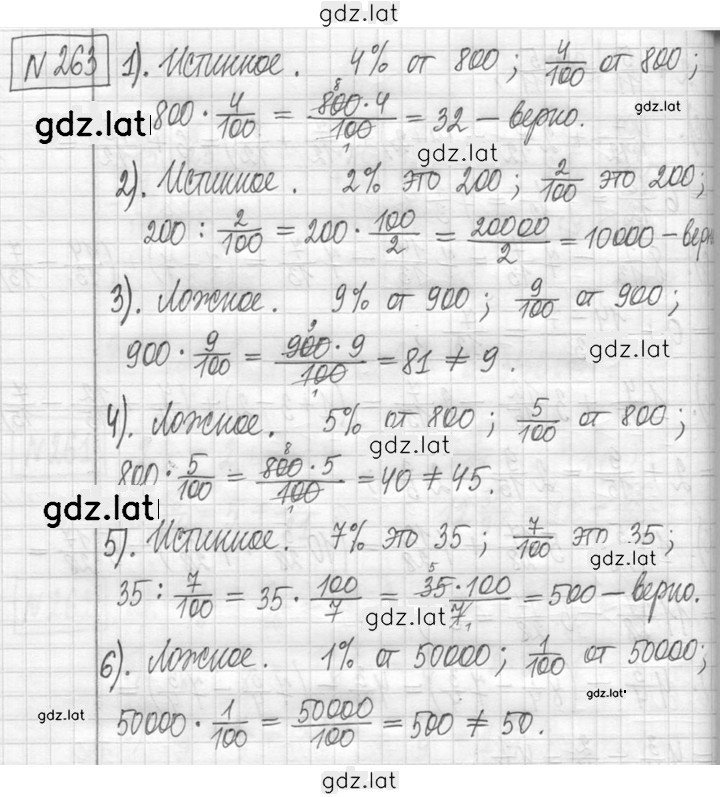 gdz.lat
N 263 1). Истинное. 4% от 800; 4/100 от 800;
800 · 4/100 = 800 · 4/100 = 32 – верно.
gdz.lat
gdz.lat
gdz.lat
2). Истинное. 2% это 200; 2/100 это 200;
200 : 2/100 = 200 · 100/2 = 20000/2 = 10000 – верн
3). Ложное. 9% от 900; 9/100 от 900;
900 · 9/100 = 900 · 9/100 = 81 ≠ 9.
gdz.lat
4). Ложное. 5% от 800; 5/100 от 800;
gdz.lat
800 · 5/100 = 800 · 5/100 = 40 ≠ 45.
gdz.lat
5). Истинное. 7% это 35; 7/100 это 35;
gdz.lat
35 : 7/100 = 35 · 100/7 = 35 · 100/7 = 500 – верно.
gdz.lat
6). Ложное. 1% от 50000; 1/100 от 50000;
gdz.lat
gdz.lat
50000 · 1/100 = 50000/100 = 500 ≠ 50.
gdz.lat